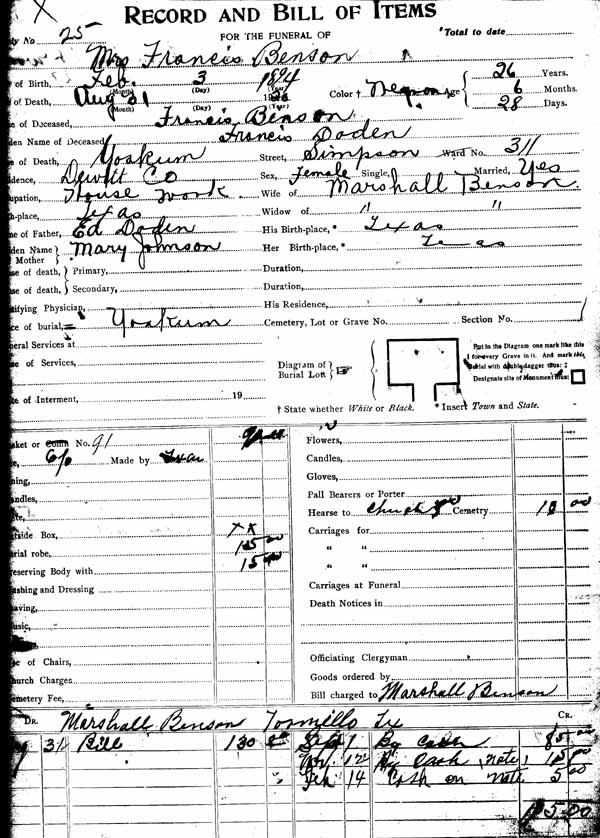 RECORD AND BILL OF ITEMS
FOR THE FUNERAL OF
*Total to date
No 25
Mrs Francis Benson
of Birth, Feb. 3 1894 (Month) (Day) (Year)
of Death, Aug 31 (Month) (Day) (Year)
Color † Negro Age 26 Years.
6 Months.
28 Days.
e of Deceased, Francis Benson
den Name of Deceased Francis Doden
e of Death, Yoakum Street, Simpson Ward No. 311
dence, Dewitt Co Sex, Female Single, Married, Yes
upation, House work Wife of Marshall Benson
h-place, Texas Widow of " "
e of Father, Ed Doden His Birth-place, * Texas
den Name } Mother Mary Johnson Her Birth-place, * Texas
se of death, } Primary, Duration,
se of death, } Secondary, Duration,
ifying Physician, His Residence,
ce of burial, Yoakum Cemetery, Lot or Grave No. Section No.
eral Services at
e of Services,
Diagram of Burial Lot
Put in the Diagram one mark like this
I for every Grave in it. And mark this
Burial with double dagger thus: ‡
Designate site of Monument thus:
te of Interment, 19
† State whether White or Black. * Insert Town and State.
sket or Coffin No. 91
6/0 Made by
ning,
andles,
tside Box, XX
rial robe, 15 00
reserving Body with 15 00
ashing and Dressing
aving,
usic,
e of Chairs,
hurch Charges
emetery Fee,
Flowers,
Candles,
Gloves,
Pall Bearers or Porter
Hearse to Church Cemetry 10 00
Carriages for
" "
" "
Carriages at Funeral
Death Notices in
Officiating Clergyman
Goods ordered by
Bill charged to Marshall Benson
DR. Marshall Benson Tornillo Tx CR.
31 Bill 130 00 Sept 7 By Cash 85 00
Nov. 122 By Cash, note, 15 00
" Feb 14 Cash on note 5 00
105.00